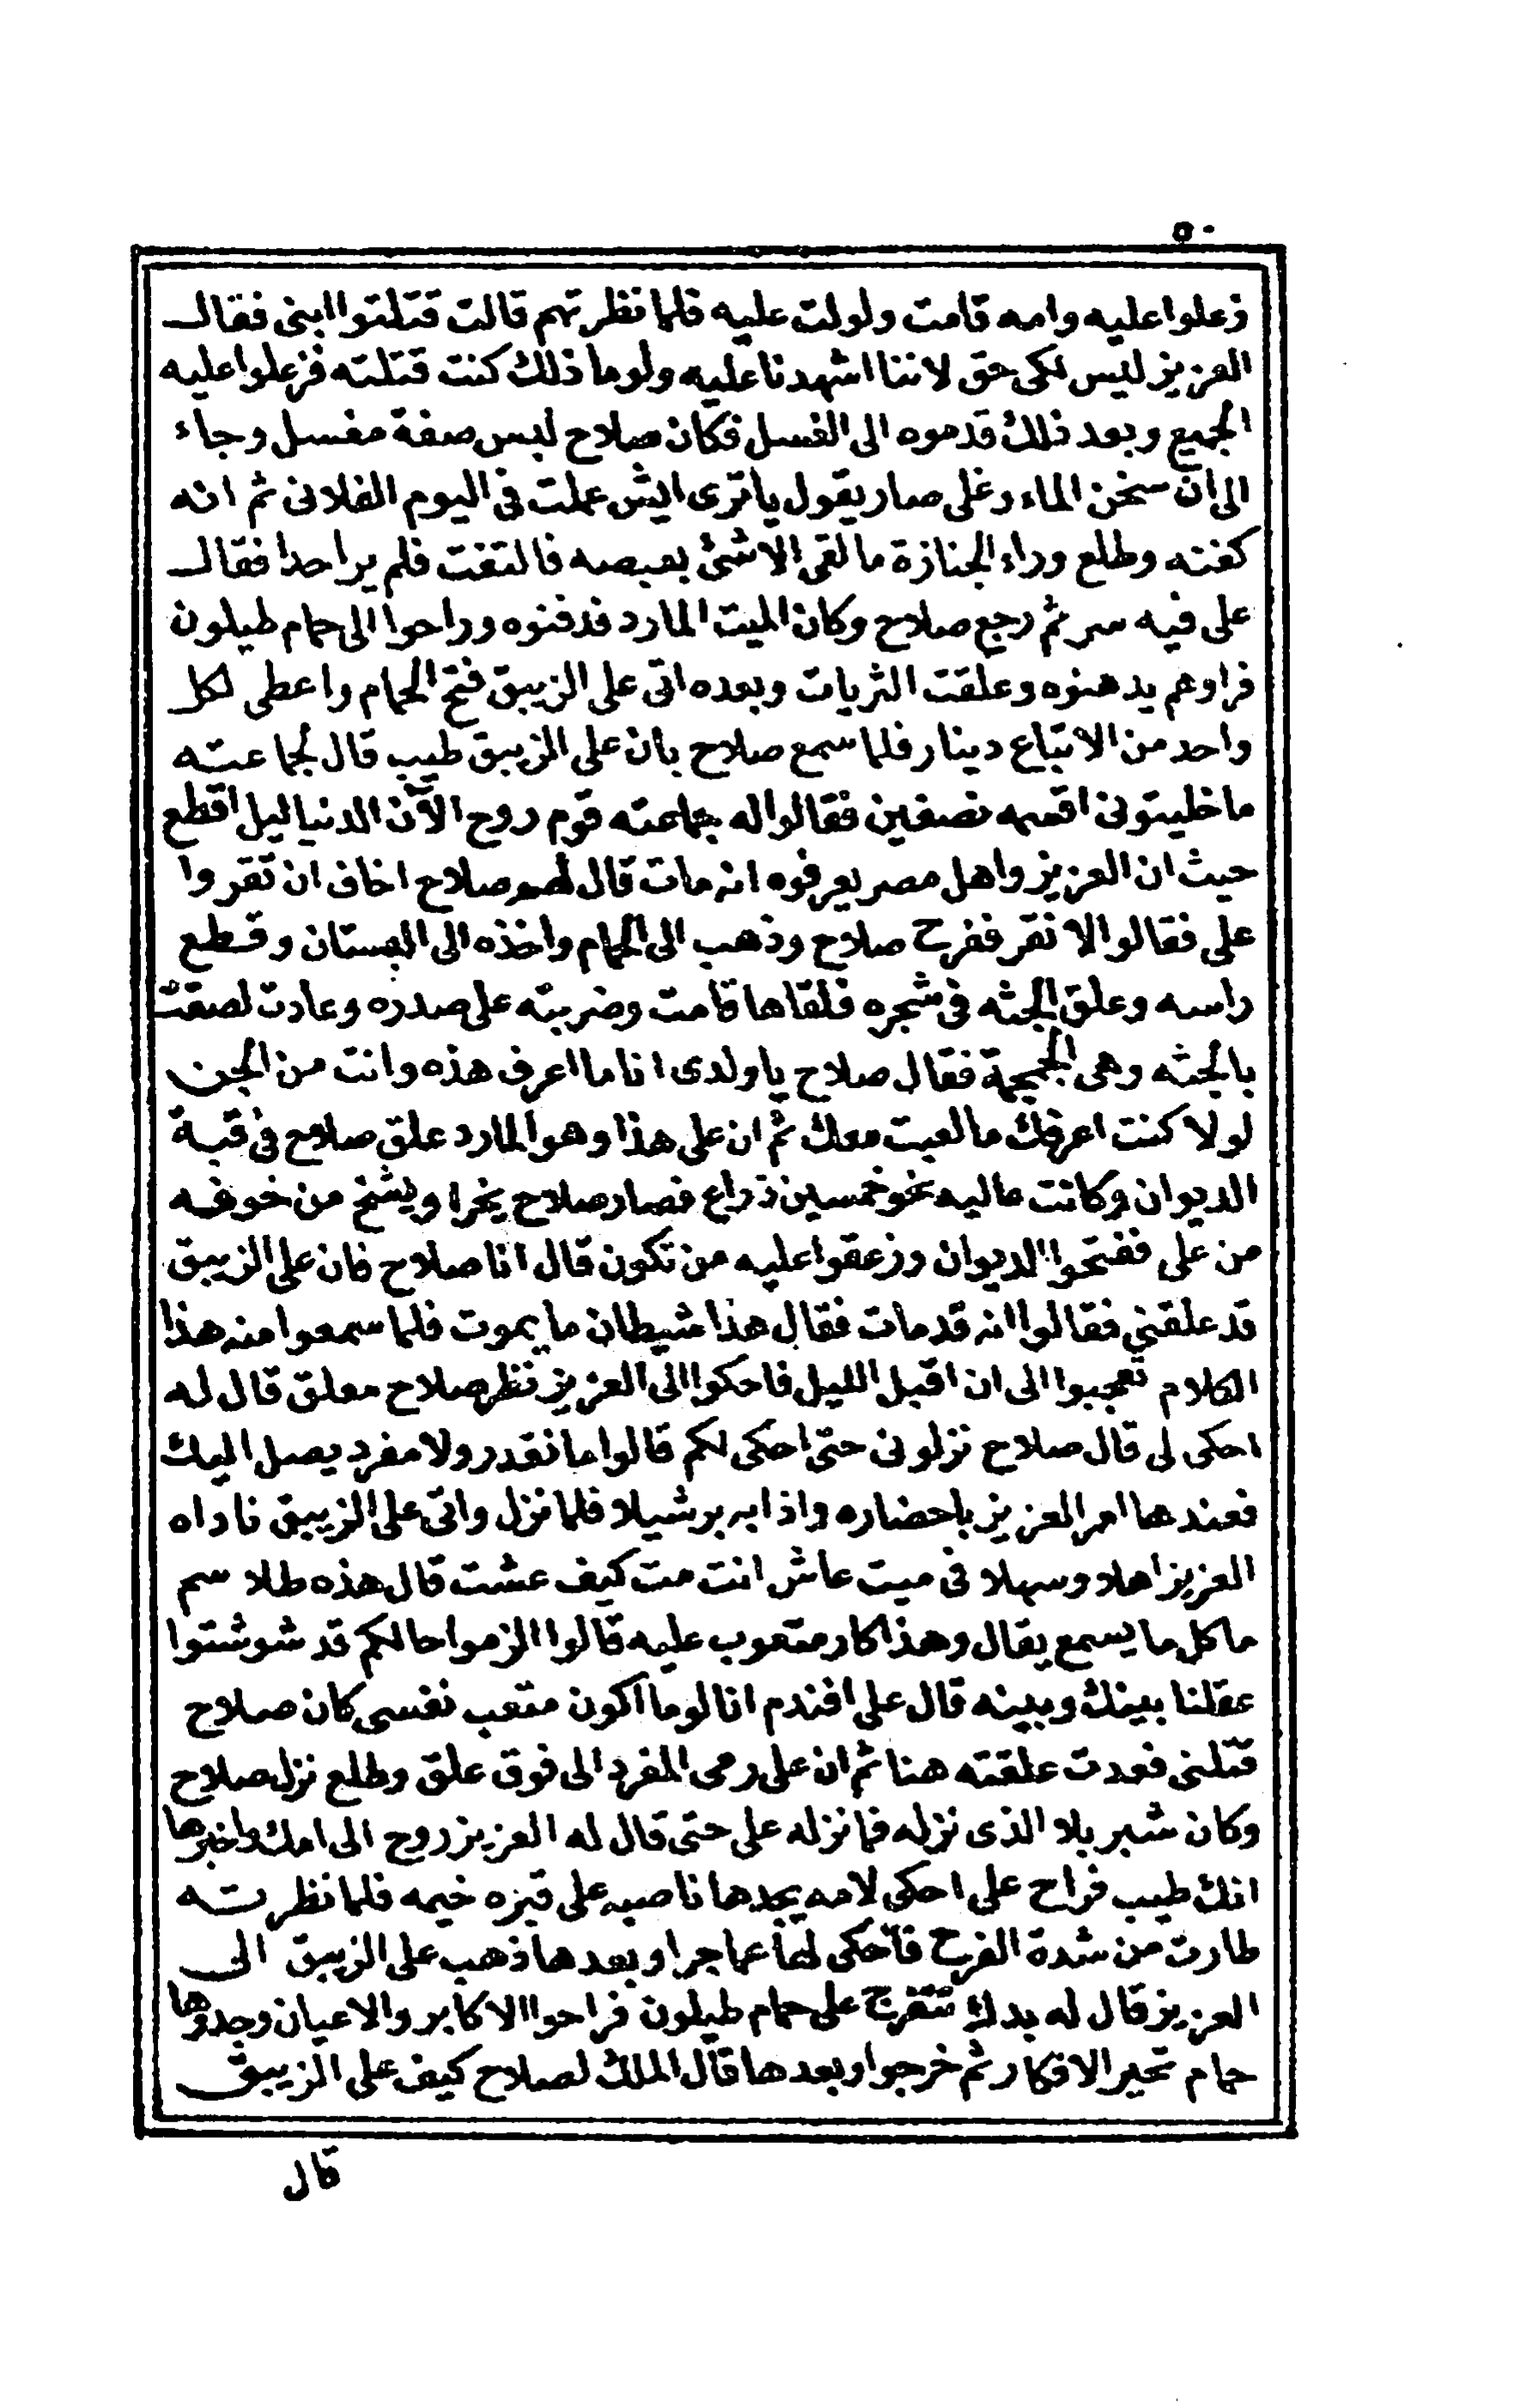 ٥٠
زعلوا عليه وامه قامت ولولت عليه فلما نظرتهم قالت قتلتوا ابنى فقال
العزيز ليس لكى حق لاننا اشهدنا عليه ولوما ذلك كنت قتلته فزعلوا عليه
الجميع وبعد ذلك قدموه الى الغسل فكان صلاح لبس صفة مغسل وجاء
الى ان سخن الماء وغلى صار يقول ياترى ايش عملت فى اليوم الفلانى ثم انه
كفنه وطلع وراء الجنازة ما لقى الا شئ بعبصه فالتفت فلم ير احدا فقال
على فيه سر ثم رجع صلاح وكان الميت المارد فدفنوه وراحوا الى حمام طيلون
فراوهم يدهنوه وعلقت الثريات وبعده اتى على الزيبق فتح الحمام واعطى لكل
واحد من الاتباع دينار فلما سمع صلاح بان على الزيبق طيب قال لجماعته
ما خليتونى اقسمه نصفين فقالوا له جماعته قوم روح الآن الدنيا ليل اقطع
حيث ان العزيز واهل مصر يعرفوه انه مات قال لهم صلاح اخاف ان تقروا
على فقالوا لا نقر ففرح صلاح وذهب الى الحمام واخذه الى البستان وقطع
راسه وعلق الجثه فى شجره فلقاها قامت وضربته على صدره وعادت لصقت
بالجثه وهى الجمجمة فقال صلاح ياولدى انا ما اعرف هذه وانت من الجن
لولا كنت اعرفك ما لعبت معك ثم ان على هذا وهو المارد علق صلاح فى قبة
الديوان وكانت عاليه نحو خمسين ذراع فصار صلاح يخرا ويشخ من خوفه
من على ففتحوا الديوان وزعقوا عليه من تكون قال انا صلاح فان على الزيبق
قد علقنى فقالوا انه قد مات فقال هذا شيطان ما يموت فلما سمعوا منه هذا
الكلام تعجبوا الى ان اقبل الليل فاحكوا الى العزيز نظر صلاح معلق قال له
احكى لى قال صلاح نزلونى حتى احكى لكم قالوا ما نقدر ولا مفرد يصل اليك
فعندها امر العزيز باحضاره واذا به برشيلا فلما نزل واتى على الزيبق ناداه
العزيز اهلا وسهلا فى ميت عاش انت مت كيف عشت قال هذه طلا سم
ما كل ما يسمع يقال وهذا كار متعوب عليه قالوا الزموا حالكم قد شوشتوا
عقلنا بينك وبينه قال على افندم انا لوما اكون متعب نفسى كان صلاح
قتلنى فعدت علقته هنا ثم ان على رمى المفرد الى فوق علق وطلع نزل صلاح
وكان شبر بلا الذى نزله فما نزله على حتى قال له العزيز روح الى امك واخبرها
انك طيب فراح على احكى لامه يجدها ناصبه على قبره خيمه فلما نظرته
طارت من شدة الفرح فاحكى لها عما جرا وبعدها ذهب على الزيبق الى
العزيز قال له بدك تتفرج على حمام طيلون فراحوا الاكابر والاعيان وجدوها
حمام تحير الافكار ثم خرجوا وبعدها قال الملك لصلاح كيف على الزيبق
قال